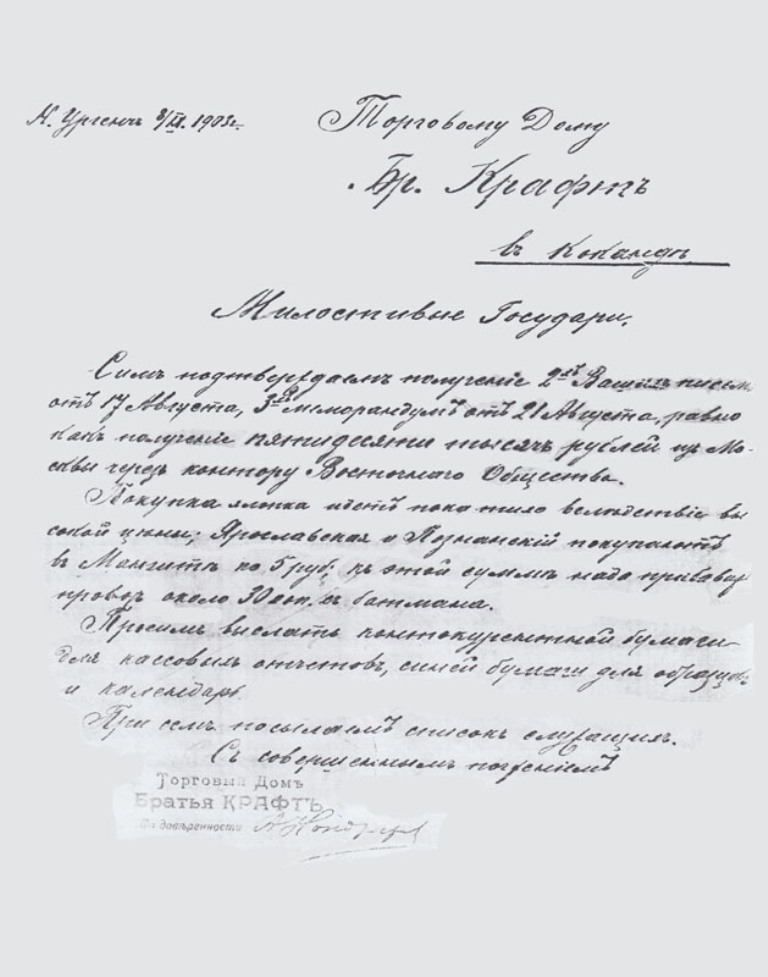 Н. Ургенчъ 8/IX. 1903 г.
Торговому Дому
Бр. Крафтъ
въ Кокандѣ
Милостивые Государи,
Симъ подтверждаемъ полученіе 2хъ Вашихъ писемъ
отъ 17 Августа, 3хъ меморандумъ отъ 21 Августа, равно
какъ полученіе пятидесяти тысячъ рублей изъ Мо-
сквы черезъ контору Восточнаго Общества.
Покупка хлопка идетъ пока тихо вслѣдствіе вы
сокой цѣны; Ярославская и Познанскій покупаютъ
въ Мангитѣ по 5 руб; къ этой суммѣ надо прибавить
провозъ около 30 коп. съ батмана.
Просимъ выслать контокурентной бумаги
для кассовыхъ отчетовъ, синей бумаги для образцовъ
и календарь.
При семъ посылаемъ списокъ служащихъ.
Съ совершеннымъ почтеніемъ
Торговый Домъ
Братья КРАФТЪ
По довѣренности